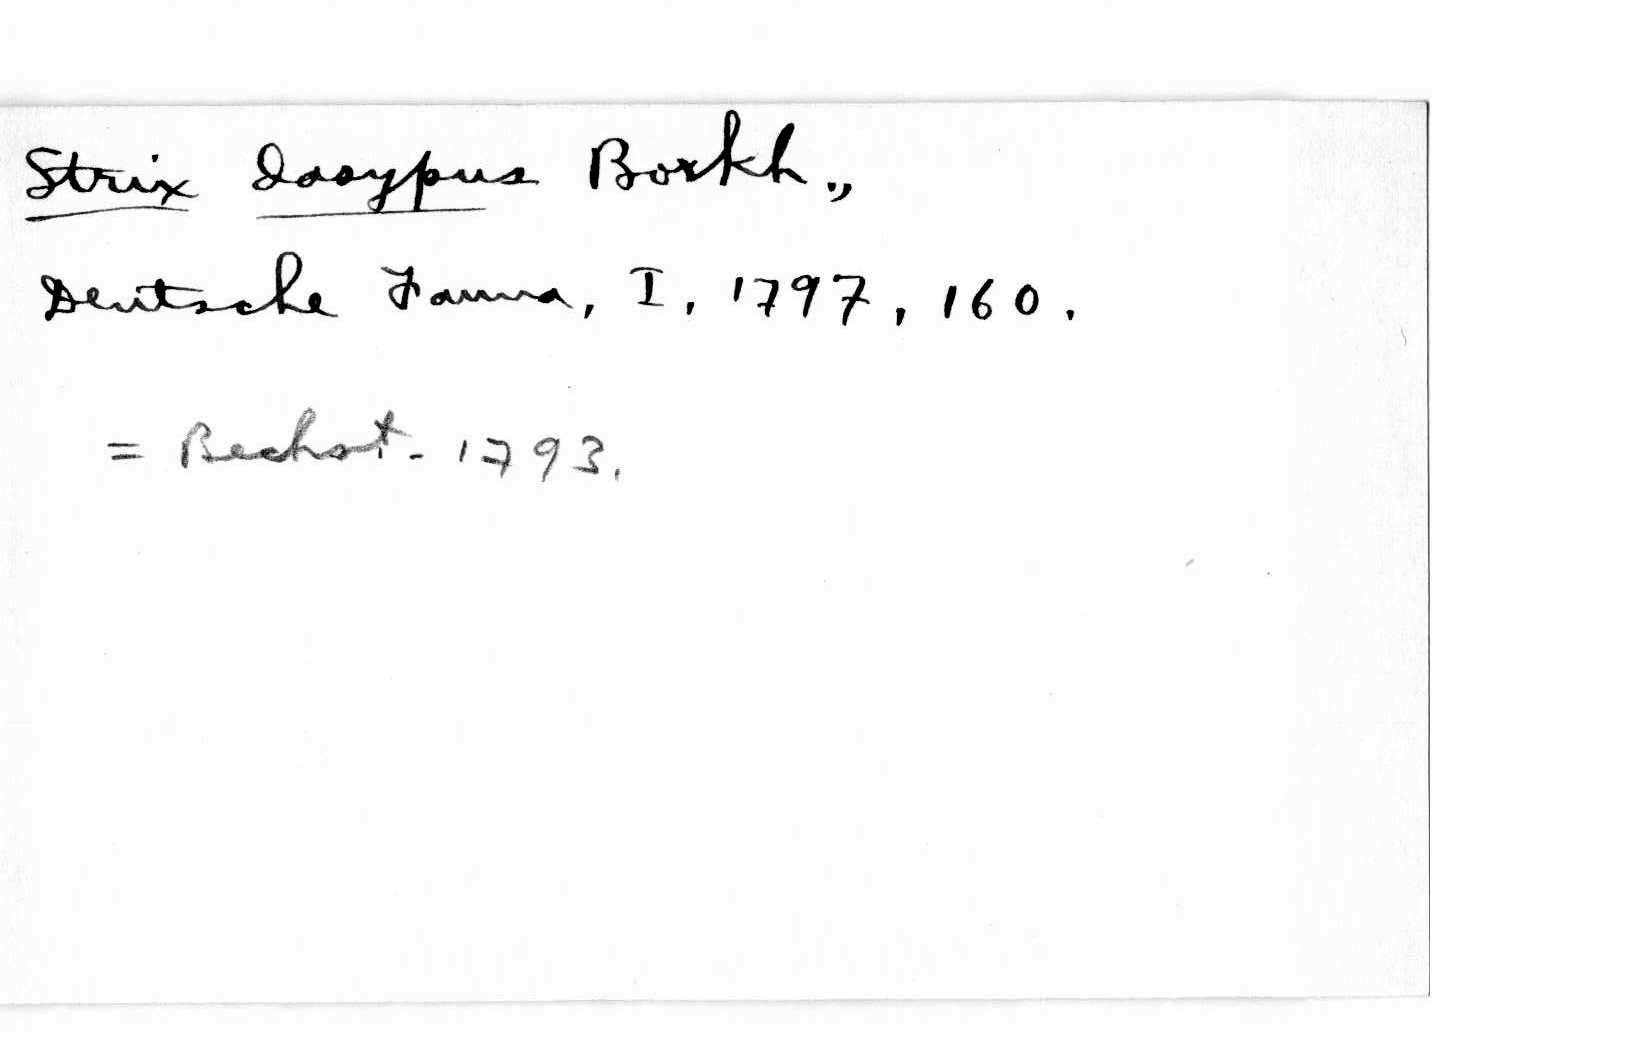 Strix dasypus Borkh.,
Deutsche Fauna, I, 1797, 160.
= Bechst. 1793.